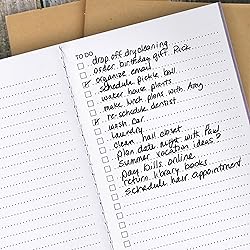 TO DO
drop off dry cleaning
order birthday gift Rick
organize email
schedule pickle ball
water house plants
make lunch plans with Amy
re-schedule dentist
wash car
laundry
clean hall closet
plan date night with Paul
Summer vacation ideas?
pay bills online
return library books
schedule hair appointment